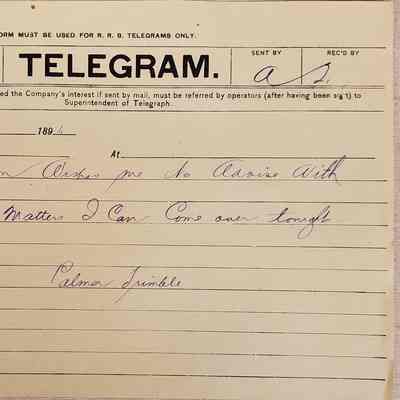 ORM MUST BE USED FOR R. R. B. TELEGRAMS ONLY.
TELEGRAM.
SENT BY
REC'D BY
ed the Company's interest if sent by mail, must be referred by operators (after having been sent) to
Superintendent of Telegraph.
189
At
Wishes me to Advise With
Matters I Can Come over tonight
Palmer Trimble